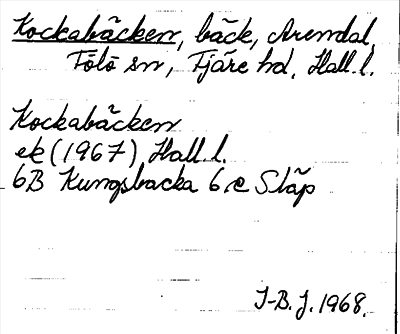 Kockabäcken, bäck, Arendal,
Fölö sn, Fjäre hd, Hall. l.
Kockabäcken
ek (1967) Hall. l.
6B Kungsbacka 6 e Släp
I-B. J. 1968.